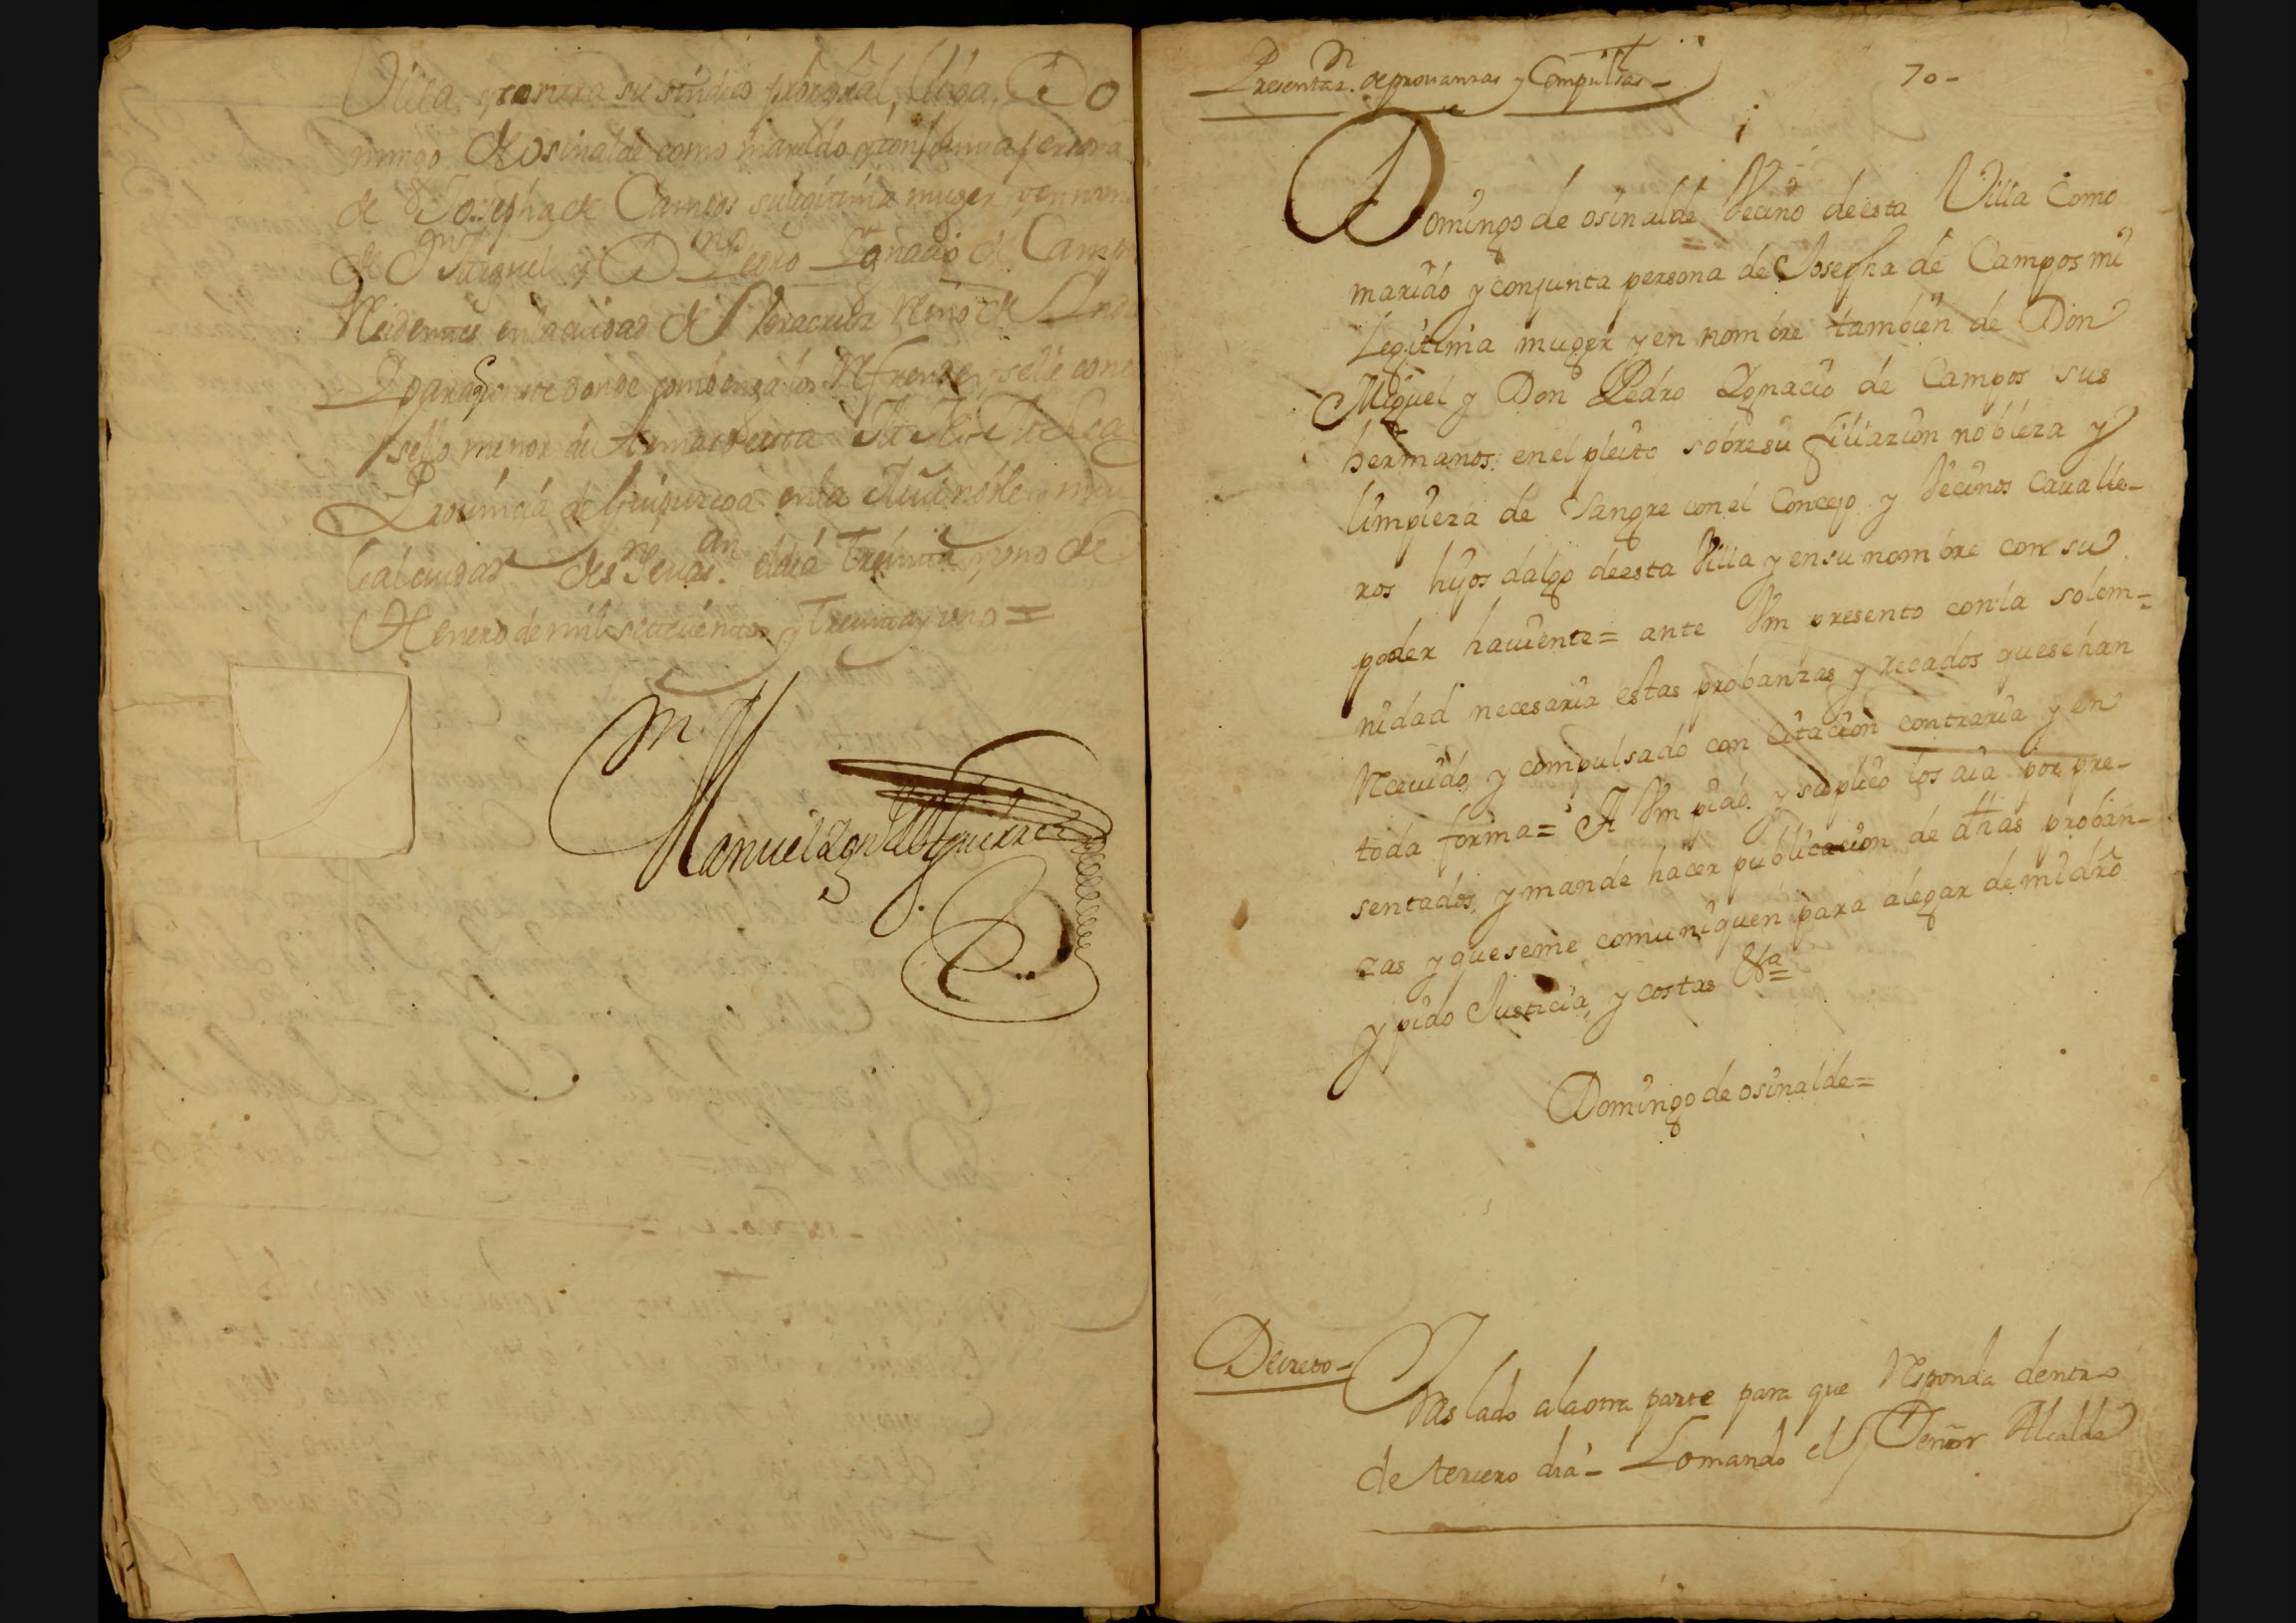 Villa y contra su síndico procural, litiga, Do
mingo de osinalde como marido y conjunta persona
de Josepha de Campos su legitima muger y en nom
de Dn Miguel y Dn Pedro Ygnacio de Campos
Residentes en la ciudad de Veracruz Reino de Indi
Y para que conste donde comvenga los Refrende y selle con el
sello menor de Armas de esta M. N. y M. Leal
Provincia de Guipuzcoa en la Mui noble y mui
leal ciudad de Sn Sevan. el dia treinta y uno de
Henero de mil setecientos y treinta y uno =
Dn Manuel Ign de Aguirre
Presentazn. de provanzas y Compulsas -
70 -
Domingo de osinalde Vecino de esta Villa Como
marido y conjunta persona de Josepha de Campos mi
Legitima muger y en nombre tambien de Don
Miguel y Don Pedro Ygnacio de Campos sus
hermanos. en el pleito sobre su filiazion nobleza y
limpieza de Sangre con el Concejo y Vecinos Cavalle-
ros hijos dalgo de esta Villa y en su nombre con su
poder haviente = ante Vm presento con la solem=
nidad necesaria estas probanzas y recados que se han
Recivido, y compulsado con Citacion contraria y en
toda forma = A Vm pido y suplico los aia por pre-
sentados, y mande hacer publicacion de dhas proban-
zas y que se me comuniquen para alegar de mi dro
y pido Justicia, y costas &a =
Domingo de osinalde =
Decreto - Traslado a la otra parte para que Responda dentro
de tercero dia - Lo mando el Señor Alcalde